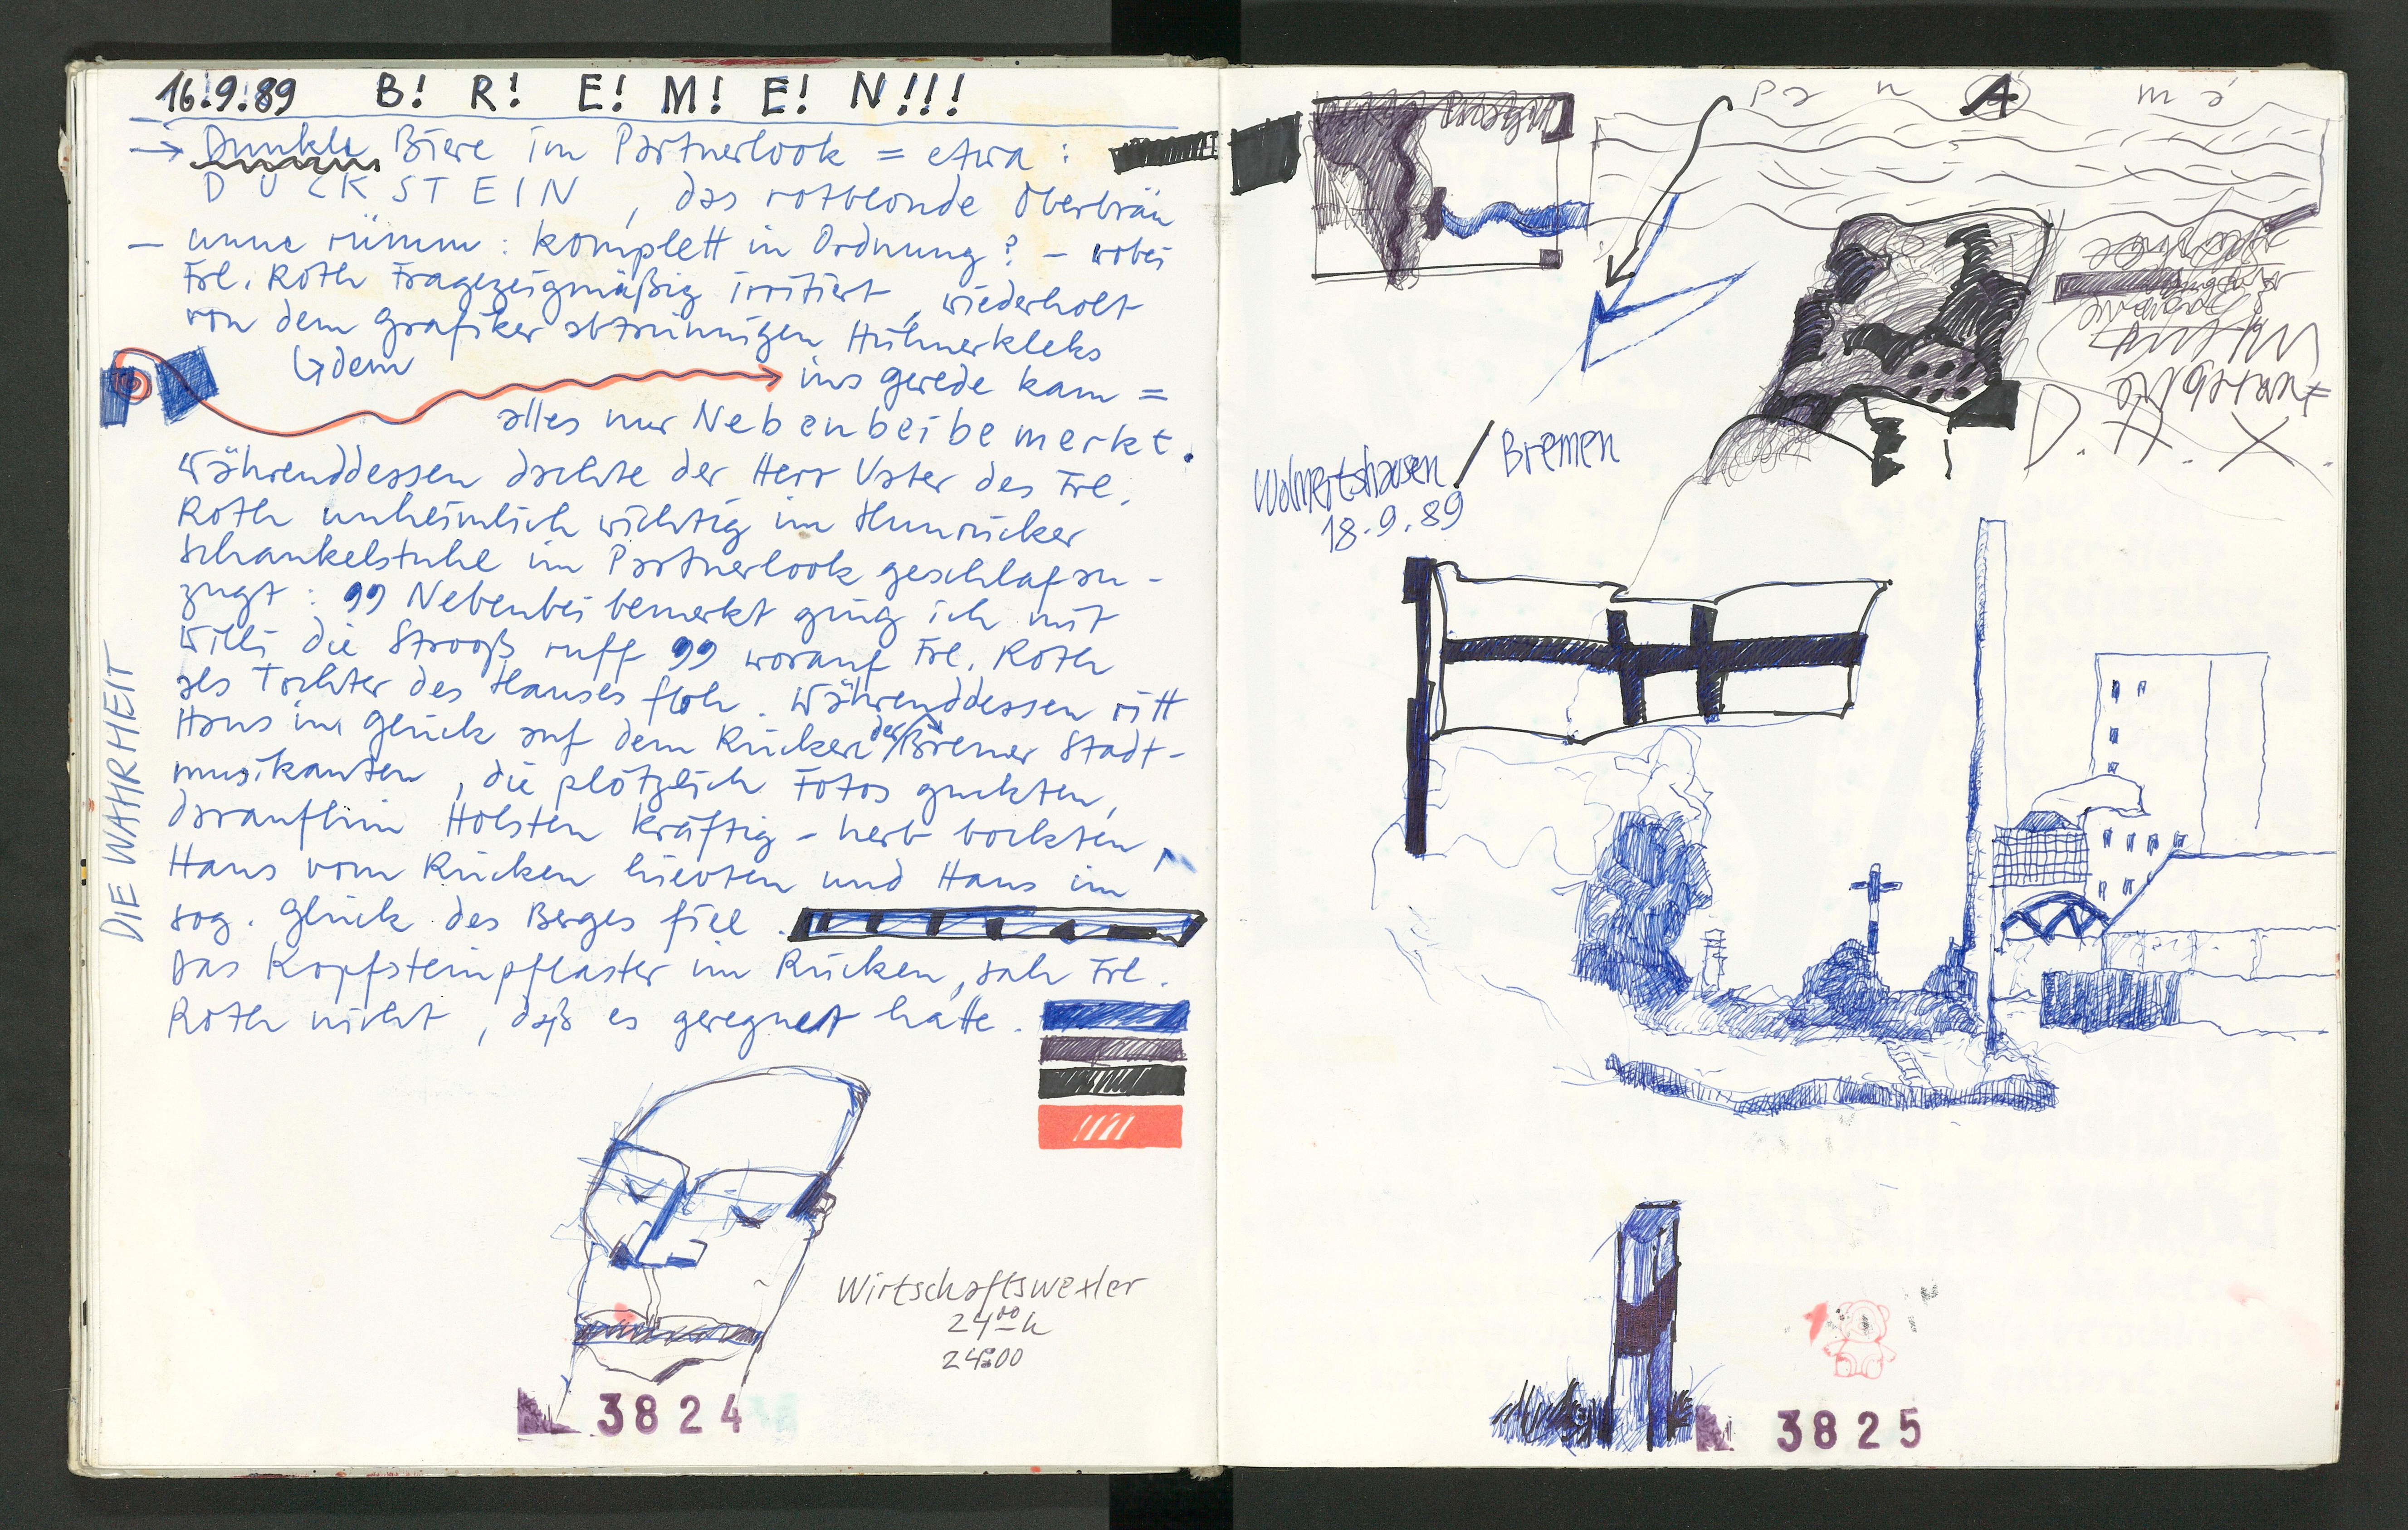 16.9.89 B! R! E! M! E! N!!!
→ Dunkle Biere im Partnerlook = etwa :
DUCKSTEIN, das rotblonde Oberbräu
— unne rümm : komplett in Ordnung ? — wobei
Frl. Roth Fragezeigmäßig irritiert, wiederholt
von dem Grafiker abtrünnigen Hühnerkleks
dem
ins Gerede kam =
alles nur Nebenbeibemerkt.
Währenddessen dachte der Herr Vater des Frl.
Roth unheimlich wichtig im Hunrücker
Schankelstuhl im Partnerlook geschlafan-
zugt : 99 Nebenbei bemerkt ging ich mit
Willi die Strooß ruff 99 worauf Frl. Roth
als Tochter des Hauses floh. Währenddessen ritt
Hans im Glück auf dem Rücken der Bremer Stadt-
musikanten, die plötzlich Fotos guckten,
daraufhin Holsten kräftig-herb bockten,
Hans vom Rücken hievten und Hans im
sog. Glück des Berges fiel.
Das Kopfsteinpflaster im Rücken, sah Frl.
Roth nicht, daß es geregnet hatte.
DIE WAHRHEIT
Wirtschaftswexler
24 00 h
24:00
3824
Pa n A m á
D. H. X.
Wolmertshausen / Bremen
18.9.89
3825